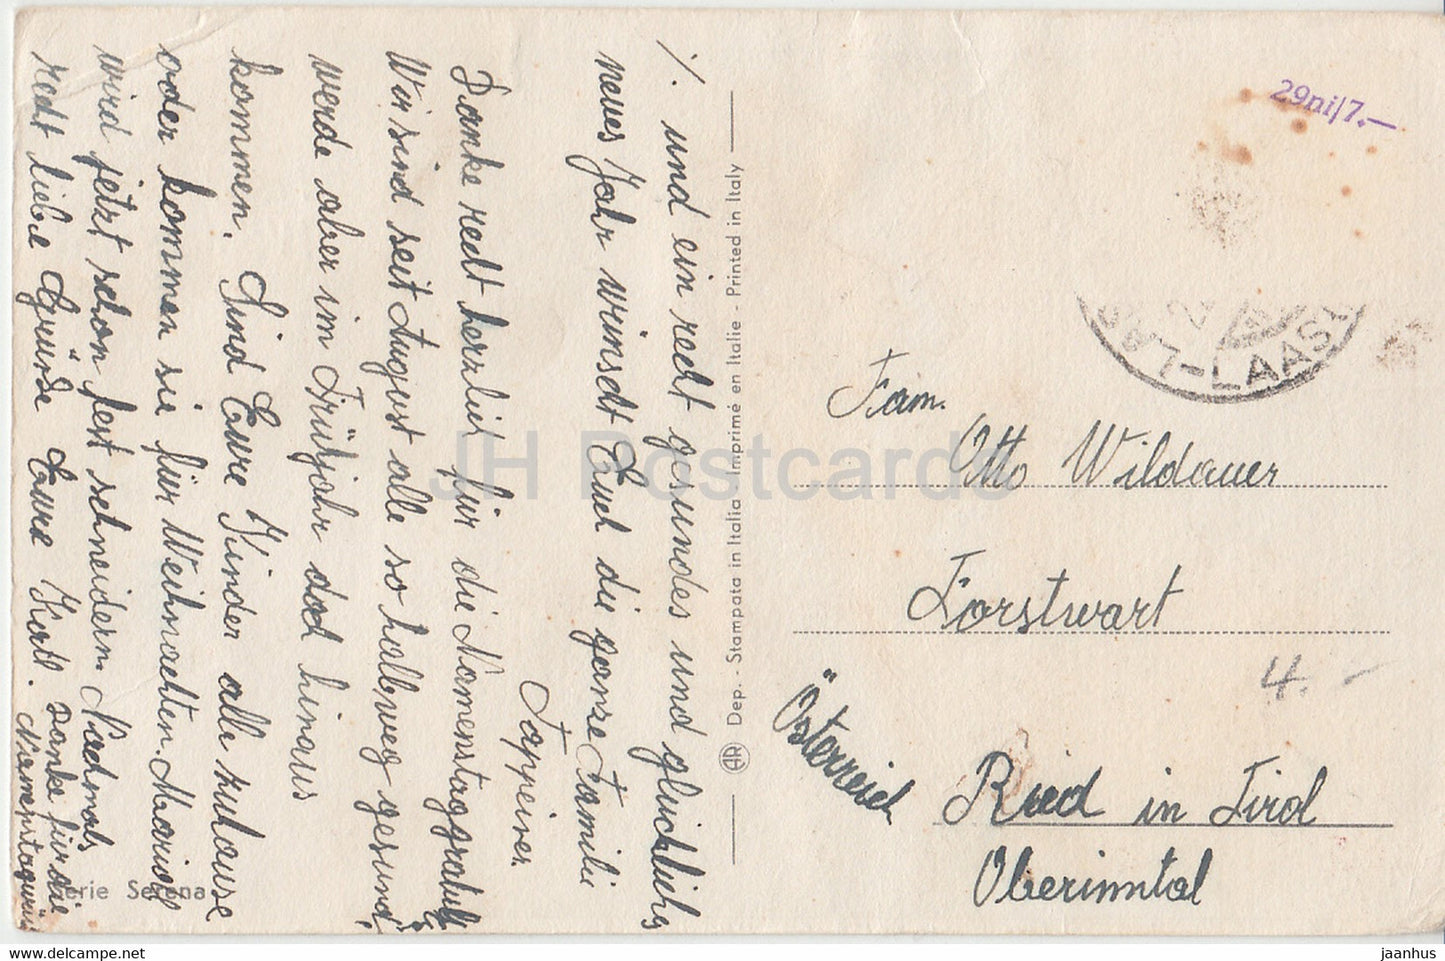 ·/. und ein recht gesundes und glückliches
neues Jahr wünscht Euch die ganze Familie
Tappeiner.
Danke recht herzlich für die Namenstaggratul.
Wir sind seit August alle so halbweg gesund,
werde aber im Frühjahr doch hinaus
kommen. Sind Eure Kinder alle zuhause
oder kommen sie für Weihnachten. Mariedl
wird jetzt schon fest schneidern Nachmals
recht liebe Grüsse Eure Kath. danke für die
Namenstagwün
Serie Serena
Dep. - Stampata in Italia - Imprimé en Italie - Printed in Italy
AR
29ni/7.—
LAAS
Fam.
Otto Wildauer
Forstwart
4.-
Österreich
Ried in Tirol
Oberinntal
JH Postcards
www.delcampe.net
jaanhus